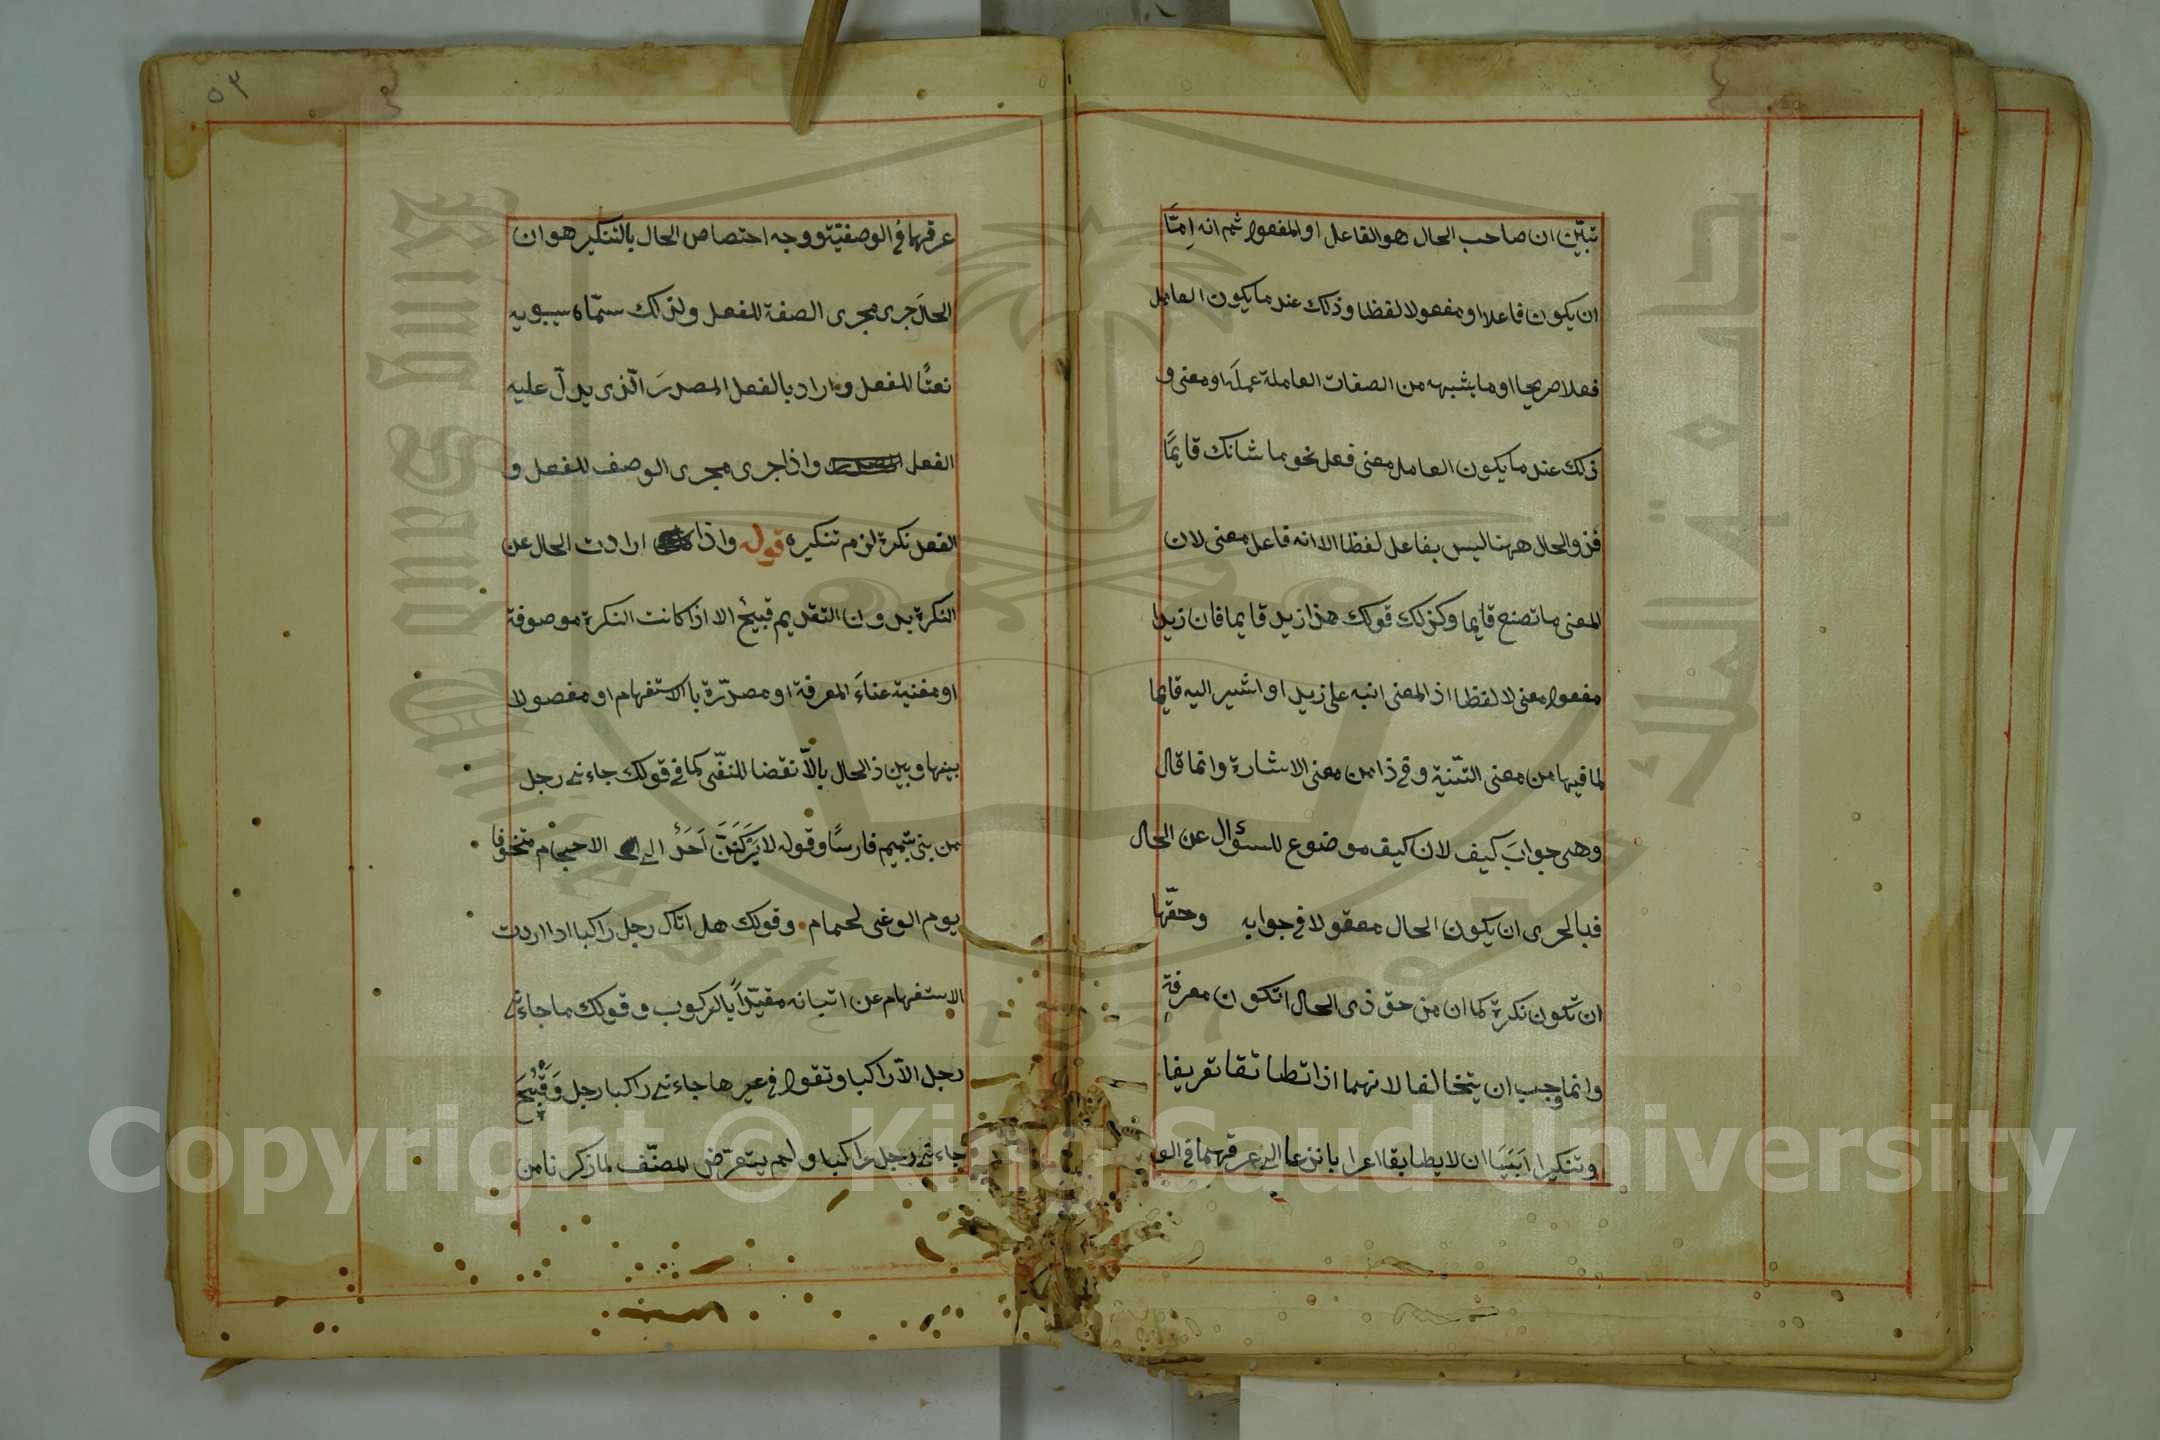 تبيّن ان صاحب الحال هو الفاعل او المفعول ثم انه اِمّا
ان يكون فاعلا او مفعولا لفظا وذلك عند ما يكون العامل
فعلا صريحا او ما يشبهه من الصفات العاملة عملَه او معنى و
ذلك عند ما يكون العامل معنى فعل نحو ما شانك قايمًا
فذو الحال ههنا ليس بفاعل لفظا الا انه فاعل معنى لان
المعنى ما تصنع قايما وكذلك قولك هذا زيد قايما فان زيدا
مفعول معنى لا لفظا اذ المعنى انبه على زيد او اشير اليه قايما
لما فيها من معنى التنبيه وفي ذا من معنى الاشارة وانما قال
وهى جوابَ كيف لان كيف موضوع للسؤال عن الحال
فبالحرى ان يكون الحال معقولا في جوابه وحقّها
ان تكون نكرة كما ان من حق ذى الحال ان تكون معرفة
وانما وجب ان يتخالفا لانهما اذا تطابقا تعريفا
وتنكيرا ان لا يطابقا اعرابا نزعا الى عرقهما في الو
٥٣
عرقهما في الوصفيّة ووجه اختصاص الحال بالتنكير هو ان
الحالَ جرى مجرى الصفة للفعل ولذلك سمّاه سيبويه
نعتًا للفعل واراد بالفعل المصدرَ الّذى يدلّ عليه
الفعل واذا جرى مجرى الوصف للفعل و
الفعل نكرة لزم تنكيره قوله واذا ارادت الحال عن
النكرة بدون التقديم قبيحٌ الا اذا كانت النكرة موصوفة
او مغنية غناءَ المعرفة او مصدّرة بالاستفهام او مفصولا
بينها وبين ذ الحال بالاّ نقضا للنفى كما في قولك جاءنى رجل
من بنى تميم فارسًا وقوله لا يَرْكَنَنَّ اَحَدٌ الى الاحجام متخوفا
يوم الوغى لحمام وقولك هل اتاك رجل راكبا اذا اردت
الاستفهام عن اتيانه مقيّداً بالركوب وقولك ما جاءنى
رجل الاّ راكبا وتقول في غيرها جاءنى راكبا رجل وَقَبُحَ
جاءنى رجل راكبا ولم يتعرّض المصنّف لما ذكرنا من
Copyright © King Saud University
King Saud University
جامعة الملك سعود
1957